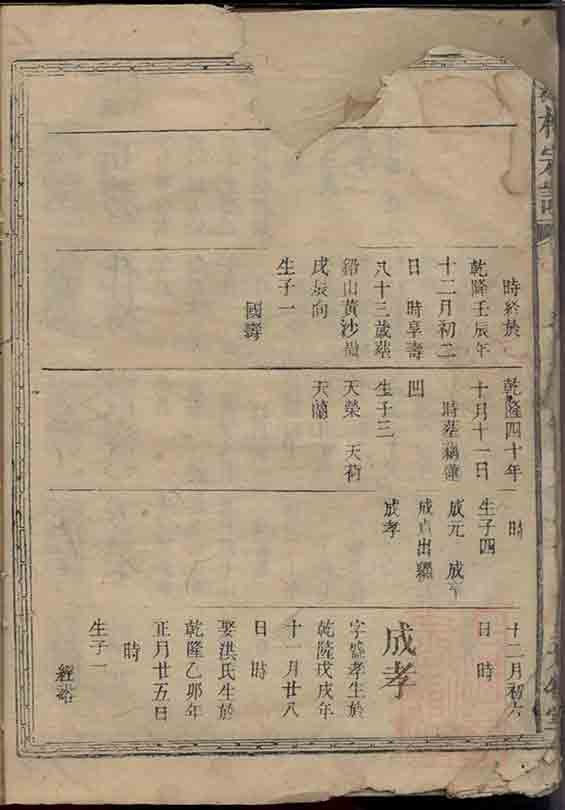 宗譜
時終於
乾隆壬辰年
十二月初二
日 時享壽
八十三歲塟
鉛山黃沙嶺
戌辰向
生子一
國壽
乾隆四十年
十月十一日
時塟藕塘
凹
生子三
天榮 天荷
天蘭
時
生子四
成元 成
成 出繼
成孝
十二月初六
日 時
成孝
字 孝生於
乾隆戊戌年
十一月廿八
日 時
娶洪氏生於
乾隆乙卯年
正月廿五日
時
生子一
經裕